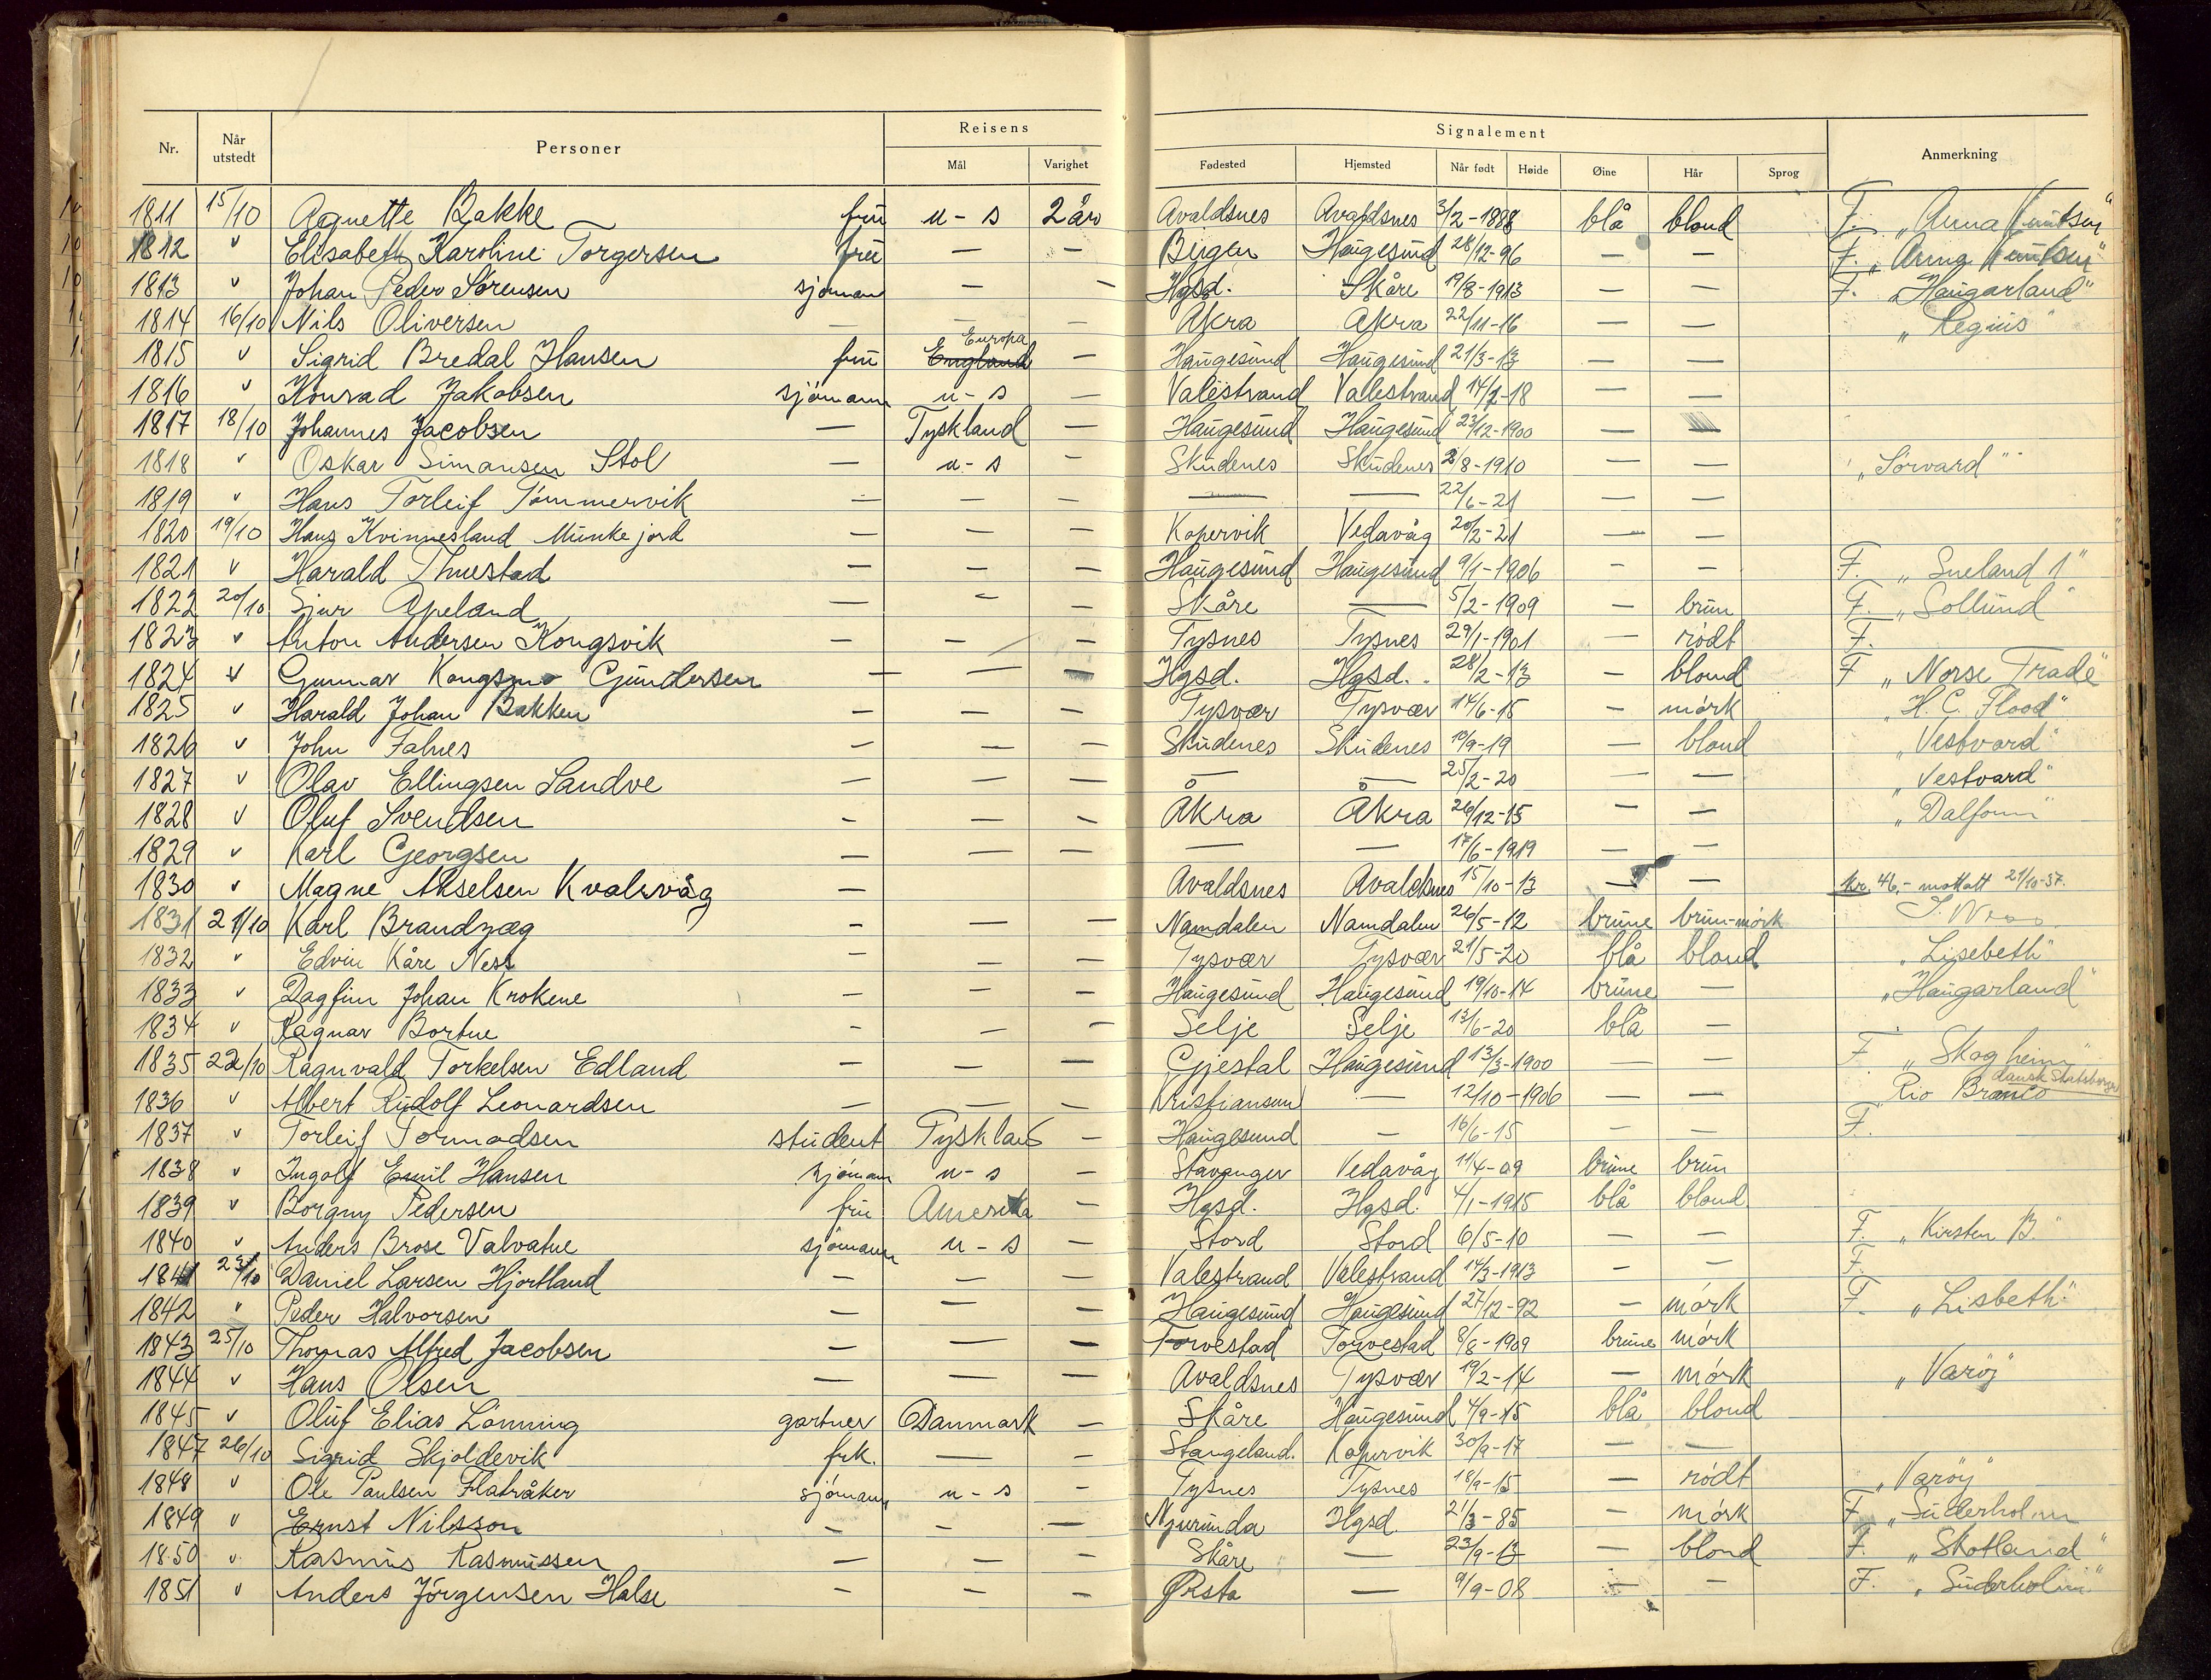 Nr. Når utstedt Personer Reisens Mål Varighet Signalement Fødested Hjemsted Når født Høide Øine Hår Sprog Anmerkning
1811 15/10 Agnette Bakke frü u-s 2 år Avaldsnes Avaldsnes 3/2-1888 blå blond F. „Anna Knutsen"
1812 v Elisabeth Karoline Torgersen frü — — Bergen Haugesund 28/12-96 — — F. „Anna Knutsen"
1813 v Johan Peder Sørensen sjømann — — Hgsd. Skåre 19/8-1913 — — F. „Haugarland"
1814 16/10 Nils Oliversen — — — Akra Akra 22/11-16 — — „Regius"
1815 v Sigrid Bredal Hansen frü England Europa — Haugesund Haugesund 21/3-13 — —
1816 v Konrad Jakobsen sjømann u-s — Valestrand Valestrand 14/2-18 — —
1817 18/10 Johannes Jacobsen — Tyskland — Haugesund Haugesund 23/12-1900 — —
1818 v Oskar Simonsen Stol — u-s — Skudenes Skudenes 2/8-1910 — — „Sørvard"
1819 v Hans Torleif Tømmervik — — — — — 22/6-21 — —
1820 19/10 Hans Kvinnesland Munkejord — — — Kopervik Vedavåg 20/2-21 — —
1821 v Harald Thuestad — — — Haugesund Haugesund 9/1-1906 — — F. „Sneland 1"
1822 20/10 Sjur Apeland — — — Skåre — 5/2-1909 — brun F. „Sollund"
1823 v Anton Andersen Kongsvik — — — Tysnes Tysnes 29/1-1901 — rødt F.
1824 v Gunnar Gundersen — — — Hgsd. Hgsd. 28/2-13 — blond F „Norse Trade"
1825 v Harald Johan Bakken — — — Tysvær Tysvær 14/6-15 — mørk „H. C. Flood"
1826 v John Falnes — — — Skudenes Skudenes 19/9-19 — blond „Vestvard"
1827 v Olav Ellingsen Sandve — — — — — 25/2-20 — — „Vestvard"
1828 v Oluf Svendsen — — — Åkra Åkra 26/12-15 — — „Dalfonn"
1829 v Karl Georgsen — — — — — 17/6-1919 — —
1830 v Magne Akselsen Kvalevåg — Avaldsnes Avaldsnes 15/10-13 — — kr. 46,- mottatt 21/10-37.
1831 21/10 Karl Brandzæg — — — Namdalen Namdalen 26/5-12 brune brun-mørk
1832 v Edvin Kåre Ness — — — Tysvær Tysvær 21/5-20 blå blond „Lisebeth"
1833 v Dagfinn Johan Krokene — — — Haugesund Haugesund 19/10-14 brune — „Haugarland"
1834 v Ragnar Bortne — — — Selje Selje 13/6-20 blå —
1835 22/10 Ragnvald Torkelsen Edland — — — Gjestal Haugesund 13/3-1900 — — F. „Skogheim"
1836 v Albert Rudolf Leonardsen — — — Kristiansund — 12/10-1906 — — Rio Branco dansk statsborger
1837 v Torleif Tormodsen student Tyskland — Haugesund — 16/6-15 — — F.
1838 v Ingolf Emil Hansen sjømann u-s — Stavanger Vedavåg 11/4-09 brune brun
1839 v Borgny Pedersen frü Amerika — Hgsd. Hgsd. 4/1-1915 blå blond
1840 v Anders Brose Valvatne sjømann u-s — Stord Stord 6/5-10 — — F. „Kirsten B."
1841 23/10 Daniel Larsen Hjortland — — — Valestrand Valestrand 14/3-1913 — — F.
1842 v Peder Halvorsen — — — Haugesund Haugesund 27/12-92 — mørk F. „Lisbeth"
1843 25/10 Thomas Alfred Jacobsen — — — Torvestad Torvestad 8/8-1909 brune mørk
1844 v Hans Olsen — — — Avaldsnes Tysvær 19/2-14 — mørk „Varøj"
1845 v Oluf Elias Lønning gartner Danmark — Skåre Haugesund 4/9-15 blå blond
1847 26/10 Sigrid Skjoldevik frk. — — Stangeland. Kopervik 30/9-17 — —
1848 v Ole Paulsen Flatråker sjømann u-s — Tysnes Tysnes 18/9-15 — rødt „Varøy"
1849 v Ernst Nilsson — — — Njurunda Hgsd. 21/3-85 — mørk F „Suderholm
1850 v Rasmus Rasmussen — — — Skåre — 23/9-13 — blond F. „Skotland"
1851 v Anders Jörgensen Halse — — — Ørsta — 9/9-08 — — F. „Suderholm"